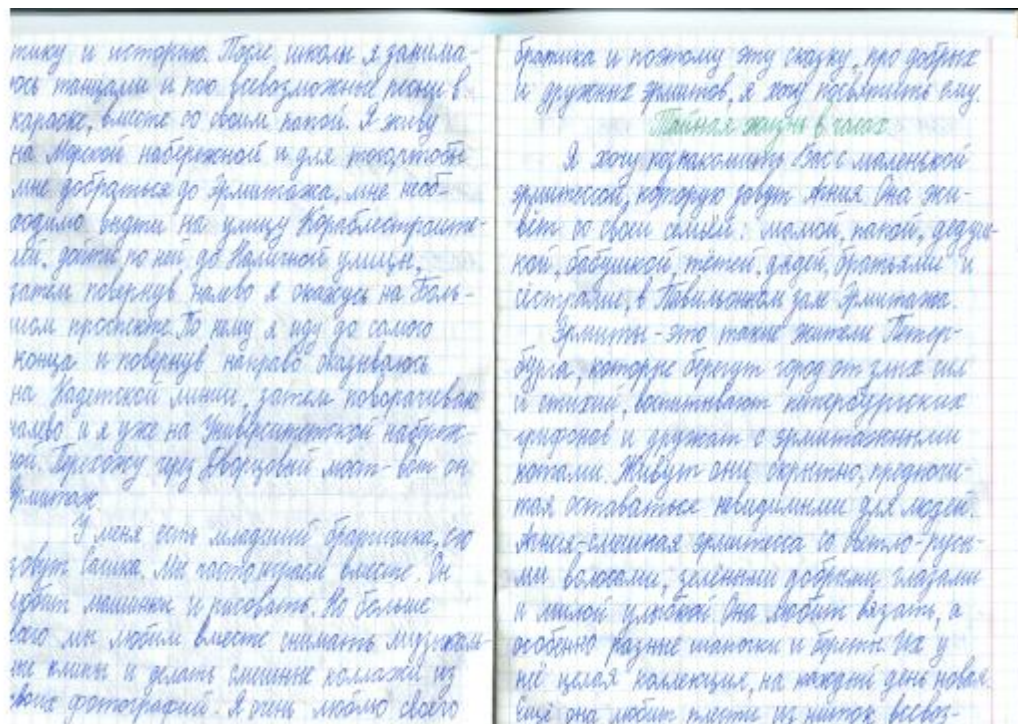 тику и историю. После школы я занима-
юсь танцами и пою всевозможные песни в
караоке, вместе со своим папой. Я живу
на Морской набережной и для того чтобы
мне добраться до Эрмитажа, мне необ-
ходимо выйти на улицу Кораблестроите-
лей, дойти по ней до Наличной улицы,
затем повернув налево я окажусь на Боль-
шом проспекте. По нему я иду до самого
конца и повернув направо оказываюсь
на Кадетской линии, затем поворачиваю
налево и я уже на Университетской набереж-
ной. Перехожу через Дворцовый мост - вот он
Эрмитаж.
У меня есть младший братишка, его
зовут Сашка. Мы часто играем вместе. Он
любит машинки и рисовать. Но больше
всего мы любим вместе снимать музыкаль-
ные клипы и делать смешные коллажи из
своих фотографий. Я очень люблю своего
братика и поэтому эту сказку, про добрых
и дружных эрмитов, я хочу посвятить ему.
Тайная жизнь в часах
Я хочу познакомить Вас с маленькой
эрмитессой, которую зовут Ания. Она жи-
вёт со своей семьёй: мамой, папой, дедуш-
кой, бабушкой, тётей, дядей, братьями и
сёстрами, в Павильонном зале Эрмитажа.
Эрмиты - это такие жители Петер-
бурга, которые берегут город от злых сил
и стихий, воспитывают петербургских
грифонов и дружат с эрмитажными
котами. Живут они скрытно, предпочи-
тая оставаться невидимыми для людей.
Ания - смешная эрмитесса со светло-русы-
ми волосами, зелёными добрыми глазами
и милой улыбкой. Она любит вязать, а
особенно разные шапочки и береты. Их у
неё целая коллекция, на каждый день новая.
Ещё она любит плести из ниток всевоз-